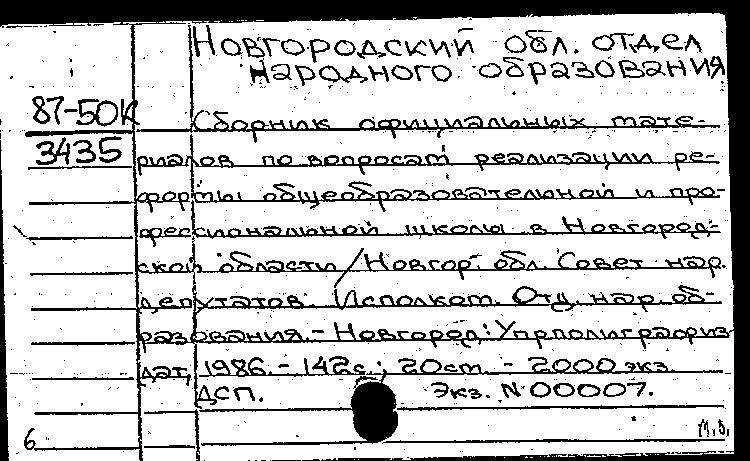 Новгородский обл. отдел
народного образования
87-50К
3435
Сборник официальных мате-
риалов по вопросам реализации ре-
формы общеобразовательной и про-
фессиональной школы в Новгород-
ской области / Новгор. обл. Совет нар.
депутатов. Исполком. Отд. нар. об-
разования. - Новгород: Упрполиграфиз-
дат, 1986. - 142с.; 20см. - 2000 экз.
ДСП. Экз. N 00007.
6